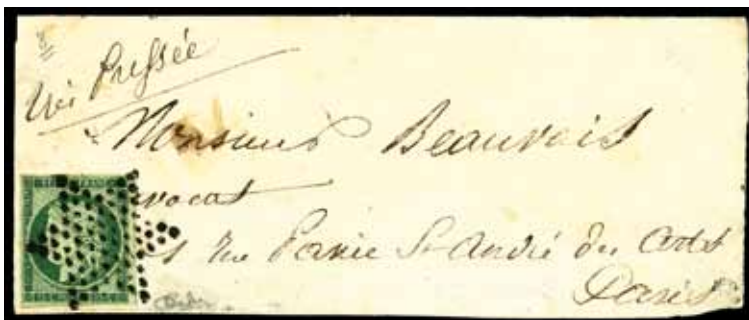 Très Pressée
Monsieur Beauvais
avocat
rue Pavée St André des Arts
Paris